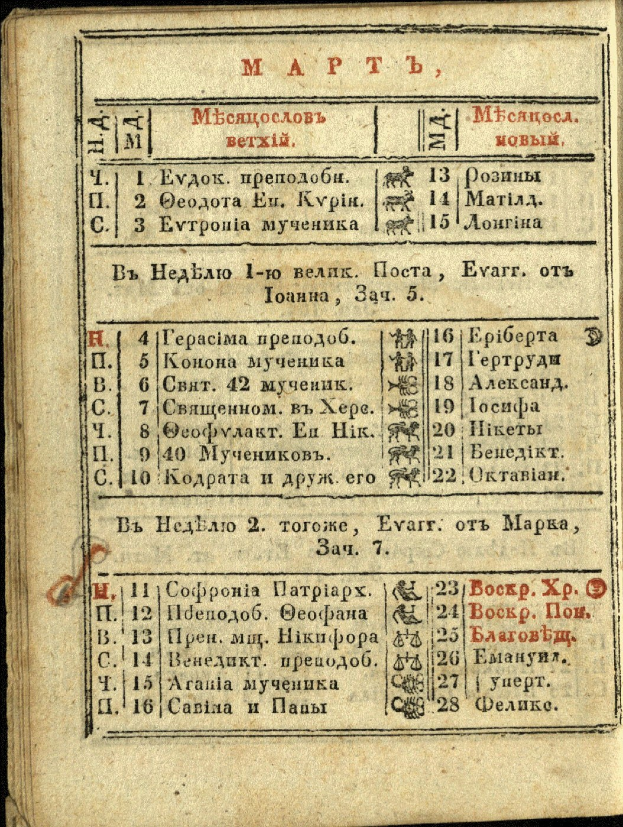 МАРТЪ,
Н.Д. М Д. Мѣсяцословъ ветхїй. М Д. Мѣсяцосл. новый.
Ч. 1 Еѵдок. преподобн. 13 Розины
П. 2 Ѳеодота Еп. Кѵрін. 14 Матілд.
С. 3 Еѵтропіа мученика 15 Лонгіна
Въ Недѣлю 1-ю велик. Поста, Еѵагг. отъ
Іоанна, Зач. 5.
Н. 4 Герасіма преподоб. 16 Еріберта
П. 5 Конона мученика 17 Гертруди
В. 6 Свят. 42 мученик. 18 Александ.
С. 7 Священном. въ Херс. 19 Іосифа
Ч. 8 Ѳеофѵлакт. Еп Нік. 20 Нікеты
П. 9 40 Мучениковъ. 21 Бенедікт.
С. 10 Кодрата и друж. его 22 Октавіан.
Въ Недѣлю 2. тогоже, Еѵагг. отъ Марка,
Зач. 7.
Н. 11 Софроніа Патріарх. 23 Воскр. Хр.
П. 12 Преподоб. Ѳеофана 24 Воскр. Пон.
В. 13 Прен. мщ. Нікифора 25 Благовѣщ.
С. 14 Венедикт. преподоб. 26 Емануил.
Ч. 15 Агапіа мученика 27 уперт.
П. 16 Савіна и Папы 28 Феликс.